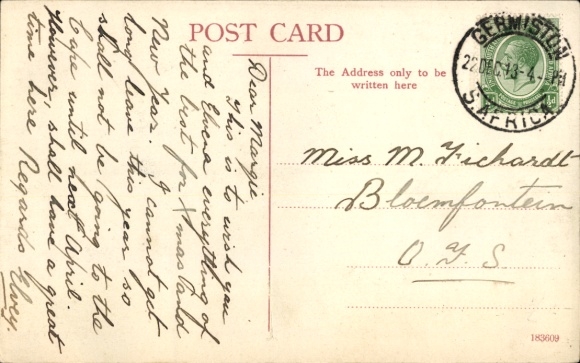 POST CARD
The Address only to be
written here
GERMISTON
22 DEC 13 - 4 - PM
S. AFRICA
Miss M. Fichardt
Bloemfontein
O. F. S.
Dear Margie
This is to wish you
and everything of
the best for Xmas and
New Year. I cannot get
long leave this year so
shall not be going to the
Cape until next April.
However, shall have a great
time here Regards
183609